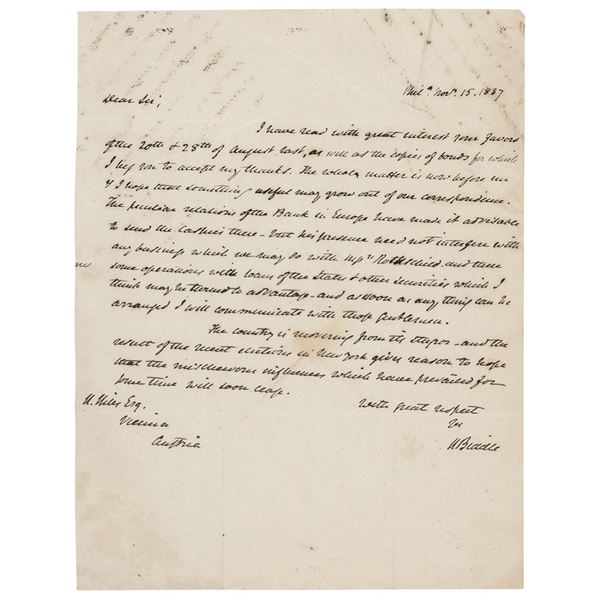 Phil.ᵃ Novr. 15, 1837
Dear Sir,
I have read with great interest your favors
of the 20th & 28th of August last, as well as the copies of bonds for which
I beg you to accept my thanks. The whole matter is now before me
& I hope that something useful may grow out of our correspondence.
The peculiar relations of the Bank in Europe have made it advisable
to send the Cashier there - but his presence need not interfere with
any business which we may do with Mssrs Rothschild and there
some operations with loans of the States & other securities which I
think may be turned to advantage - and as soon as any thing can be
arranged I will communicate with those Gentlemen.
The country is recovering from its stupor - and the
result of the recent elections in New York gives reason to hope
that the mischievous influences which have prevailed for
some time will soon cease.
With great respect
Yrs
N Biddle
N. Niles Esq.
Vienna
Austria